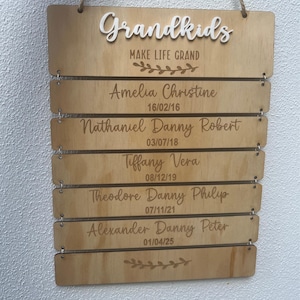 Grandkids
MAKE LIFE GRAND
Amelia Christine
16/02/16
Nathaniel Danny Robert
03/07/18
Tiffany Vera
08/12/19
Theodore Danny Philip
07/11/21
Alexander Danny Peter
01/04/25